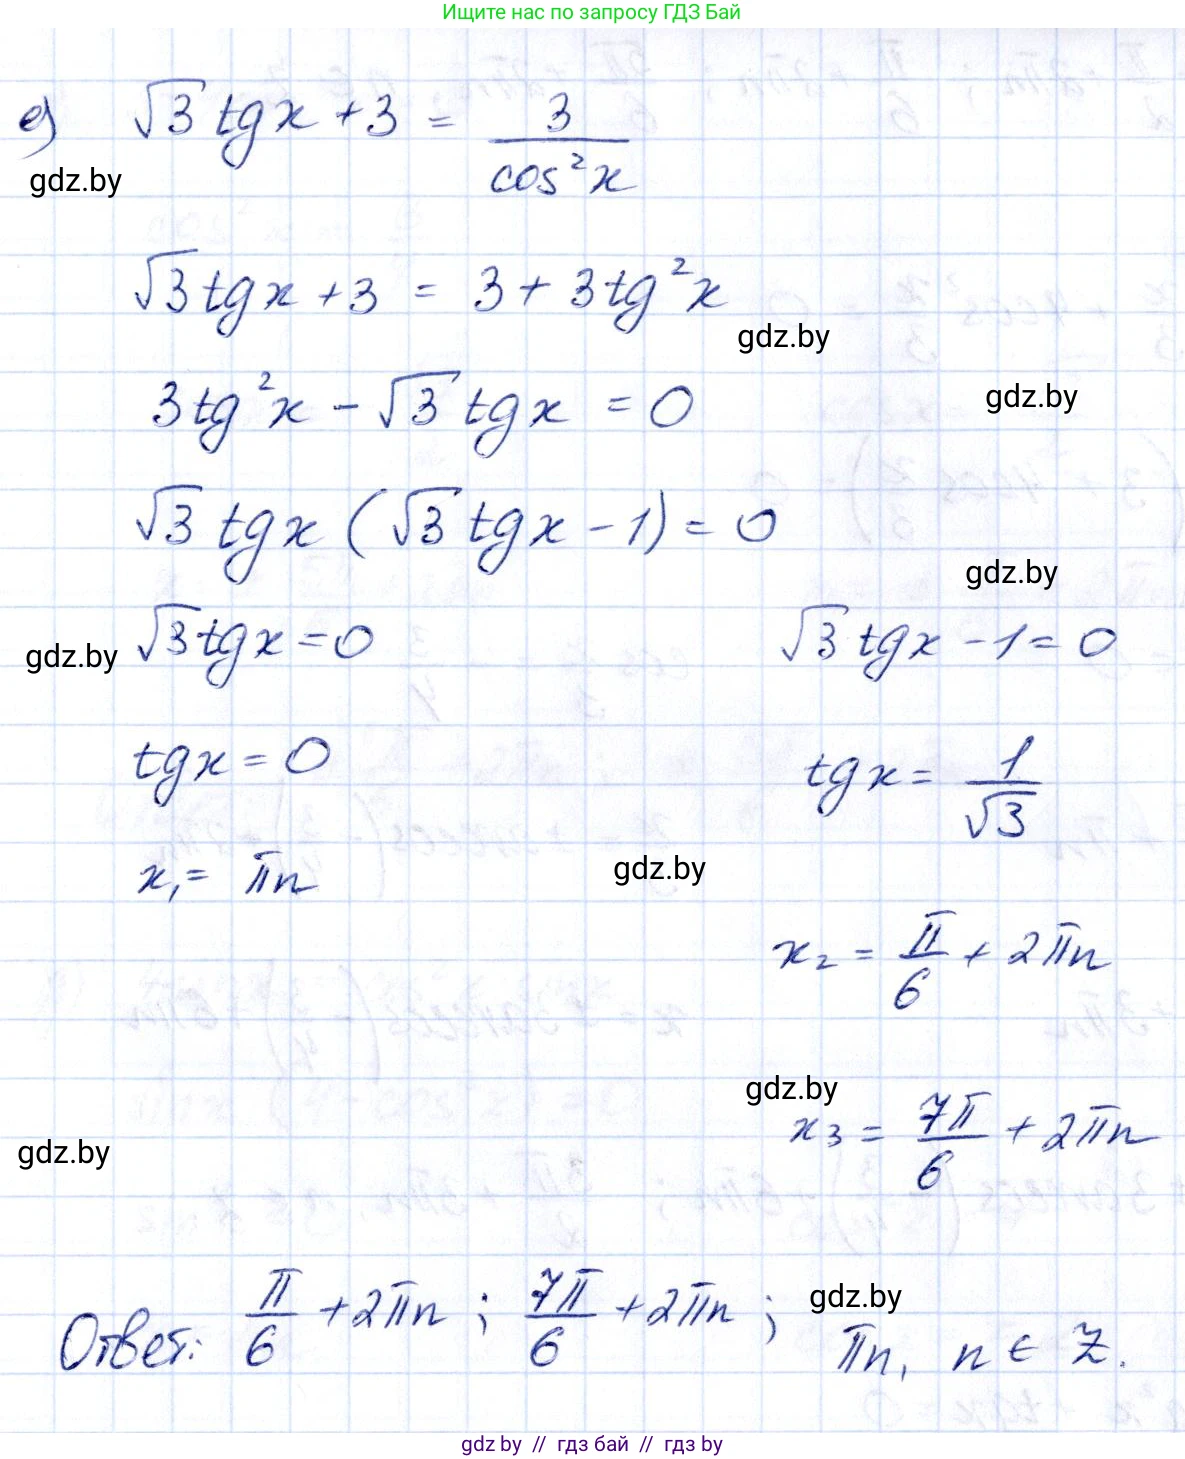 Ищите нас по запросу ГДЗ Бай
е) √3 tgx + 3 = 3/cos²x
gdz.by
√3 tgx + 3 = 3 + 3tg²x
gdz.by
3tg²x - √3 tgx = 0
gdz.by
√3 tgx (√3 tgx - 1) = 0
gdz.by
√3 tgx = 0 √3 tgx - 1 = 0
gdz.by
tgx = 0 tgx = 1/√3
x₁ = πn
gdz.by
x₂ = π/6 + 2πn
gdz.by
x₃ = 7π/6 + 2πn
gdz.by
gdz.by
Ответ: π/6 + 2πn ; 7π/6 + 2πn ; πn, n ∈ Z.
gdz.by // гдз бай // гдз by